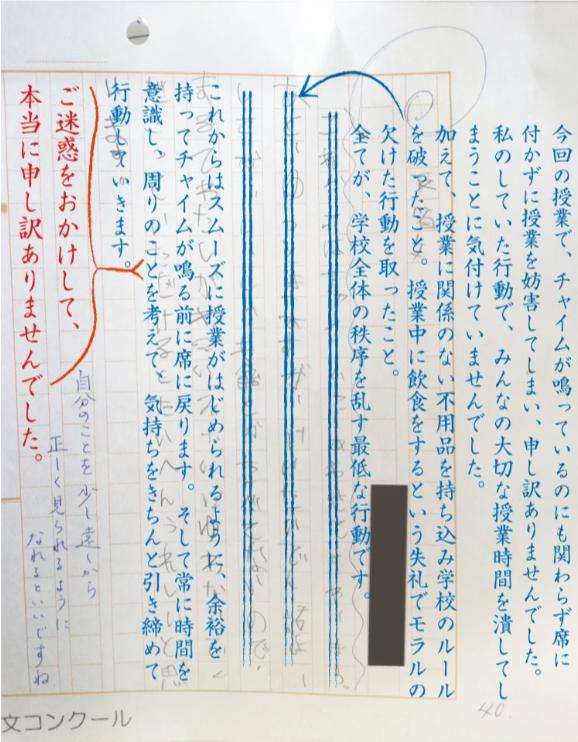 今回の授業で、チャイムが鳴っているのにも関わらず席に
付かずに授業を妨害してしまい、申し訳ありませんでした。
私のしていた行動で、みんなの大切な授業時間を潰してし
まうことに気付けていませんでした。
加えて、授業に関係のない不用品を持ち込み学校のルール
を破ったこと。授業中に飲食をするという失礼でモラルの
欠けた行動を取ったこと。
全てが、学校全体の秩序を乱す最低な行動です。
これからはスムーズに授業がはじめられるように、余裕を
持ってチャイムが鳴る前に席に戻ります。そして常に時間を
意識し、周りのことを考えて、気持ちをきちんと引き締めて
行動していきます。
ご迷惑をおかけして、
本当に申し訳ありませんでした。
自分のことを少し遠くから
正しく見られるように
なれるといいですね
文コンクール
40